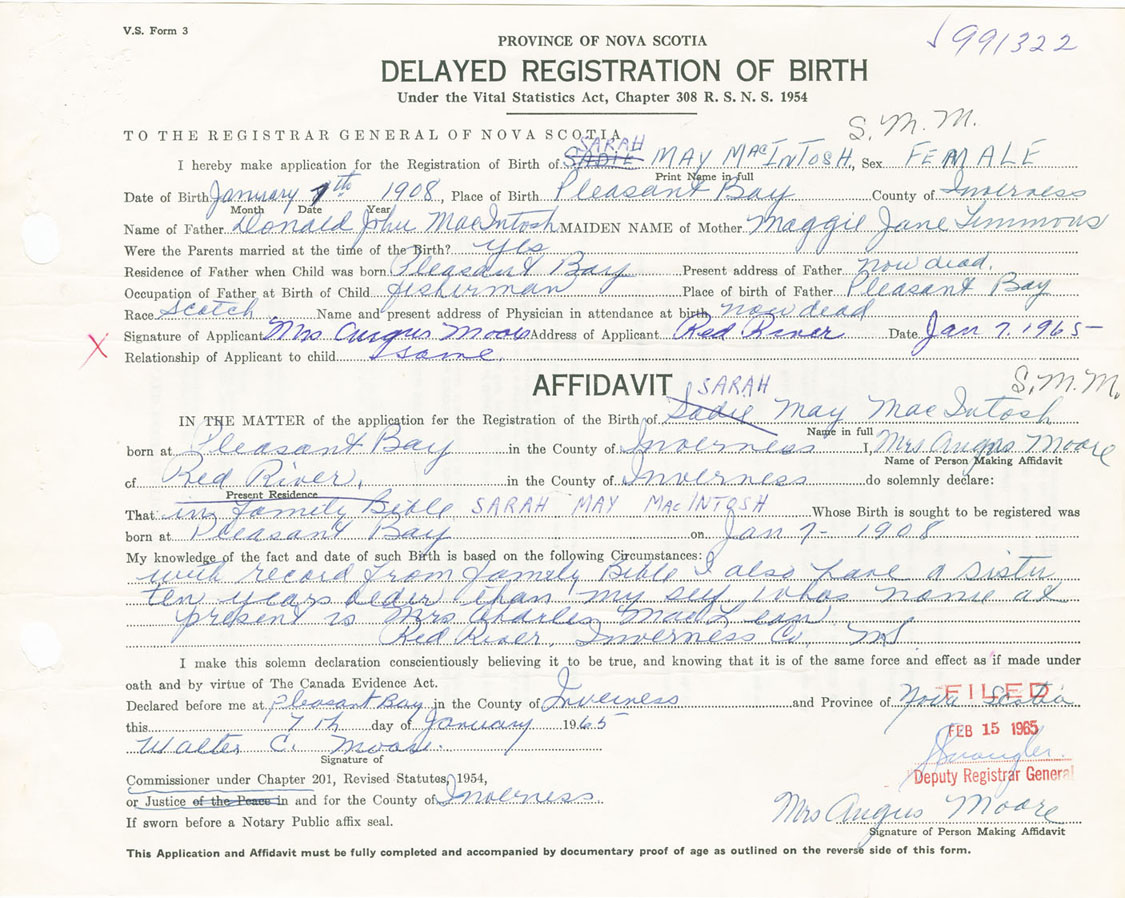 V.S. Form 3
991322
PROVINCE OF NOVA SCOTIA
DELAYED REGISTRATION OF BIRTH
Under the Vital Statistics Act, Chapter 308 R. S. N. S. 1954
S. M. M.
TO THE REGISTRAR GENERAL OF NOVA SCOTIA
SARAH
I hereby make application for the Registration of Birth of SADIE MAY MACINTOSH, Sex FEMALE
Print Name in full
Date of Birth January 7th 1908, Place of Birth Pleasant Bay County of Inverness
Month Date Year
Name of Father Donald John MacIntosh MAIDEN NAME of Mother Maggie Jane Timmons
Were the Parents married at the time of the Birth? yes
Residence of Father when Child was born Pleasant Bay Present address of Father now dead.
Occupation of Father at Birth of Child fisherman Place of birth of Father Pleasant Bay
Race Scotch Name and present address of Physician in attendance at birth now dead
X Signature of Applicant Mrs Angus Moore Address of Applicant Red River Date Jan 7. 1965
Relationship of Applicant to child same
AFFIDAVIT
SARAH S. M. M.
IN THE MATTER of the application for the Registration of the Birth of Sadie May MacIntosh
Name in full
born at Pleasant Bay in the County of Inverness I, Mrs Angus Moore
Name of Person Making Affidavit
of Red River, in the County of Inverness do solemnly declare:
Present Residence
That in family Bible SARAH MAY MACINTOSH Whose Birth is sought to be registered was
born at Pleasant Bay on Jan 7 - 1908
My knowledge of the fact and date of such Birth is based on the following Circumstances:
with record from family Bible I also have a sister
ten years older than my self whos name at
present is Mrs Charles MacLean
Red River, Inverness Co, NS
I make this solemn declaration conscientiously believing it to be true, and knowing that it is of the same force and effect as if made under
oath and by virtue of The Canada Evidence Act.
Declared before me at Pleasant Bay in the County of Inverness and Province of Nova Scotia
FILED
this 7th day of January 1965
FEB 15 1965
Walter C. Moore.
Signature of
Deputy Registrar General
Commissioner under Chapter 201, Revised Statutes, 1954,
or Justice of the Peace in and for the County of Inverness
Mrs Angus Moore
If sworn before a Notary Public affix seal.
Signature of Person Making Affidavit
This Application and Affidavit must be fully completed and accompanied by documentary proof of age as outlined on the reverse side of this form.